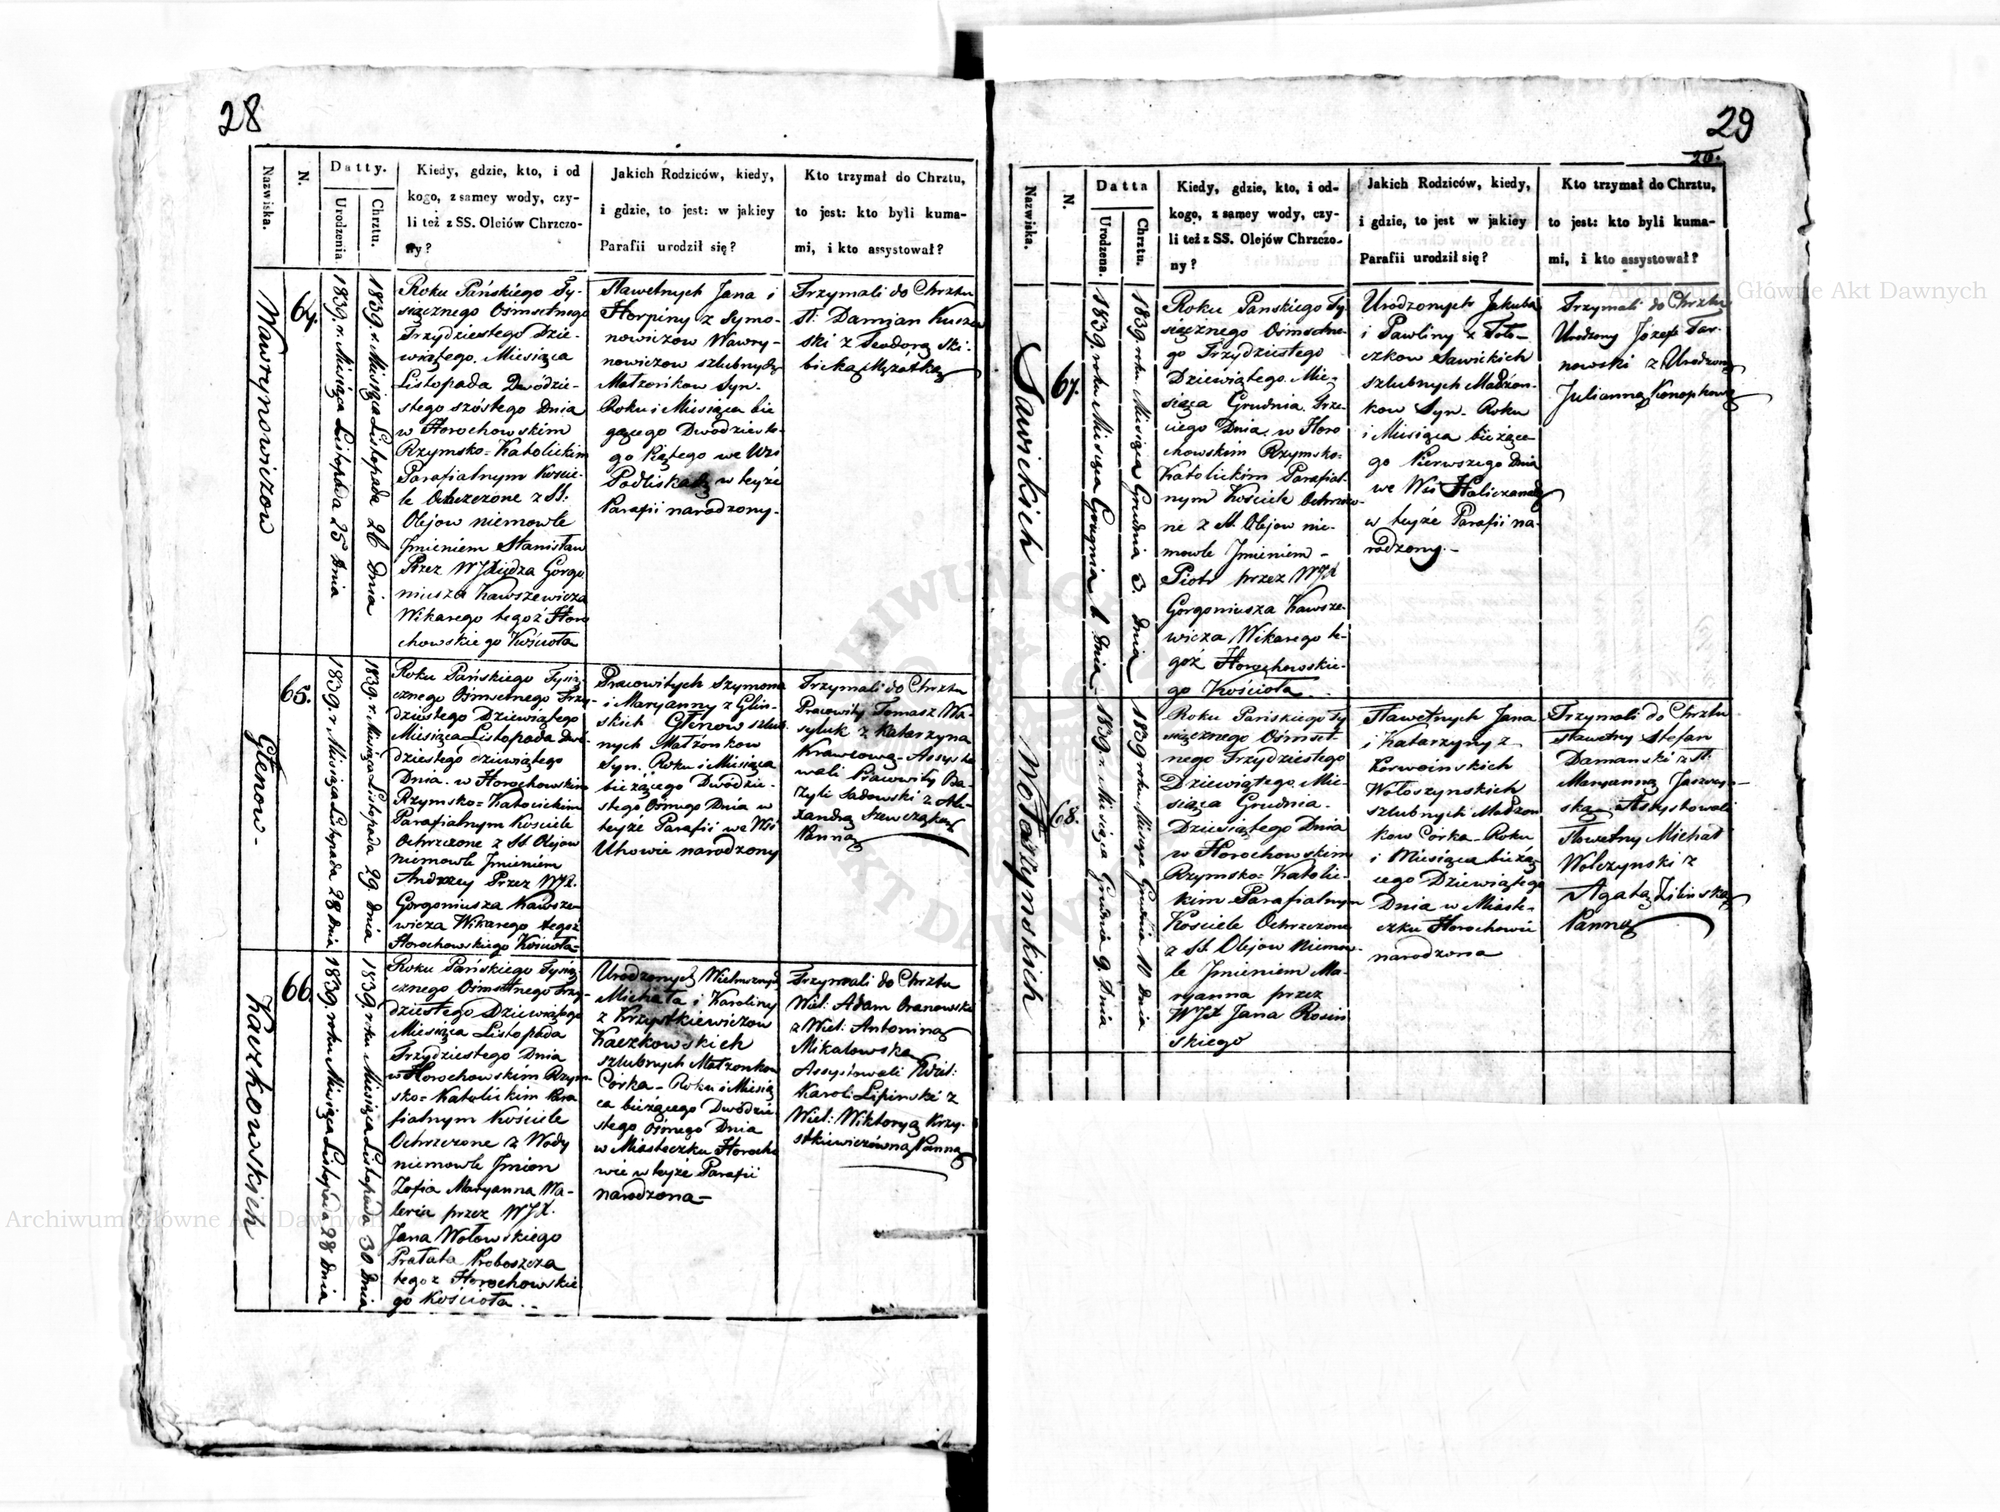 28
Nazwiska.
N.
Datty.
Urodzenia.
Chrztu.
Kiedy, gdzie, kto, i od
kogo, z samey wody, czy-
li też z SS. Oleiów Chrzczo-
ny?
Jakich Rodziców, kiedy,
i gdzie, to jest: w jakiey
Parafii urodził się?
Kto trzymał do Chrztu,
to jest: kto byli kuma-
mi, i kto assystował?
Wawrynowiczow
64.
1839. r. Miesiąca Listopada 25 Dnia
1839. r. Miesiąca Listopada 26 Dnia
Roku Pańskiego Ty-
siącznego Osmsetnego
Trzydziestego Dzie-
wiątego. Miesiąca
Listopada Dwódzie-
stego szóstego Dnia
w Horochowskim
Rzymsko-Katolickim
Parafialnym Koście-
le Ochrzczone z SS.
Olejow niemowle
Jmieniem Stanisław
Przez WJXiędza Gorgo
niusza Kawszewicza
Wikarego tegoż Horo
chowskiego Kościoła
Sławetnych Jana i
Horpiny z Symo-
nowiczow Wawry-
nowiczow szlubnych
Małżonkow Syn.
Roku i Miesiąca bie
gącego Dwódziesto-
go Piątego we Wsi
w teyże
Parafii narodzony.
Trzymali do Chrztu
Sł: Damian
ski z Teodorą Ski-
bicką Mężatką
Glenow -
65.
1839 r. Miesiąca Listopada 28 Dnia
1839 r. Miesiąca Listopada 29. Dnia
Roku Pańskiego Tysią
cznego Osmsetnego Trzy-
dziestego Dziewiątego
Miesiąca Listopada Dwó-
dziestego dziewiątego
Dnia. w Horochowskim
Rzymsko=Katolickim
Parafialnym Kościele
Ochrzczone z SS. Olejow
niemowle Jmieniem
Andrzey Przez WJX.
Gorgoniusza Kawsze-
wicza Wikarego tegoż
Horochowskiego Kościoła
Pracowitych Szymona
i Maryanny z Glin-
skich Glenow szlub-
nych Małżonkow
Syn. Roku i Miesiąca
bieżącego Dwódzie-
stego Osmego Dnia w
teyże Parafii we Wsi
Uhowie narodzony
Trzymali do Chrztu
Pracowity Tomasz Wa-
syluk z Katarzyną
Krawcową - Assysto-
wali Pracowity Ba-
zyli Sadowski z Ale-
xandrą Szewczukową
Panną
Kaczkowskich
66.
1839. roku Miesiąca Listopada 28 Dnia
1839. roku Miesiąca Listopada 30 Dnia
Roku Pańskiego Tysią
cznego Osmsetnego Trzy-
dziestego Dziewiątego
Miesiąca Listopada
Trzydziestego Dnia
w Horochowskim Rzym-
sko=Katolickim Para
fialnym Kościele
Ochrzczone z Wody
niemowle Jmion
Zofia Maryanna Wa-
leria przez WJX.
Jana Wołowskiego
Prałata Proboszcza
tegoż Horochowskie
go Kościoła. -
Urodzonych Wielmożnych
Michała i Karoliny
z Krzystkiewiczow
Kaczkowskich
szlubnych Małżonkow
Corka - Roku i Miesią
ca bieżącego Dwódzie-
stego Osmego Dnia
w Miasteczku Horocho
wie w teyże Parafii
narodzona -
Trzymali do Chrztu
Wiel: Adam Oranowski
z Wiel: Antoniną
Mikałowską
Assystowali Wiel:
Karol Lipinski z
Wiel: Wiktoryą Krzy-
stkiewiczowną Panną
29
20.
Nazwiska.
N.
Datta
Urodzena.
Chrztu.
Kiedy, gdzie, kto, i od-
kogo, z samey wody, czy-
li też z SS. Olejów Chrzczo-
ny?
Jakich Rodziców, kiedy,
i gdzie, to jest w jakiey
Parafii urodził się?
Kto trzymał do Chrztu,
to jest: kto byli kuma-
mi, i kto assystował?
Sawickich
67.
1839. roku Miesiąca Grudnia 1 Dnia.
1839. roku Miesiąca Grudnia 3. Dnia
Roku Pańskiego Ty-
siącznego Ośmsetne-
go Trzydziestego
Dziewiątego. Mie-
siąca Grudnia. Trze-
ciego Dnia, w Horo
chowskim Rzymsko-
Katolickim Parafial-
nym Kościele Ochrzczo-
ne z SS. Olejow nie-
mowle Jmieniem -
Piotr przez WJX
Gorgoniusza Kawsze-
wicza Wikarego te-
goż Horochowskie-
go Kościoła. -
Urodzonych Jakuba
i Pawliny z Toło-
czkow Sawickich
szlubnych Małżon-
kow Syn. Roku
i Miesiąca bieżące-
go Pierwszego Dnia
we Wsi Haliczanach
w teyże Parafii na-
rodzony. -
Trzymali do Chrztu
Urodzony Józef Tar-
nowski z Urodzoną
Julianną Konopkową
Wołoszynskich
68.
1839. r. Miesiąca Grudnia 9. Dnia
1839 roku Miesiąca Grudnia 10 Dnia
Roku Pańskiego Ty
siącznego Ośmset-
nego Trzydziestego
Dziewiątego. Mie-
siąca Grudnia.
Dziesiątego Dnia
w Horochowskim
Rzymsko= Katolic-
kim Parafialnym
Kościele Ochrzczone
z SS. Olejow Niemow-
le Jmieniem Ma-
ryanna przez
WJX Jana Rosin
skiego
Sławetnych Jana
i Katarzyny z
Korwoinskich
Wołoszynskich
szlubnych Małżon
kow Corka - Roku
i Miesiąca bieżą-
cego Dziewiątego
Dnia w Miaste-
czku Horochowie
narodzona
Trzymali do Chrztu
Sławetny Stefan
Damanski z Sł.
Maryanną
Assystowali
Sławetny Michał
Wolczynski z
Agatą Zilinską
Panną
Archiwum Główne Akt Dawnych
Archiwum Główne Akt Dawnych